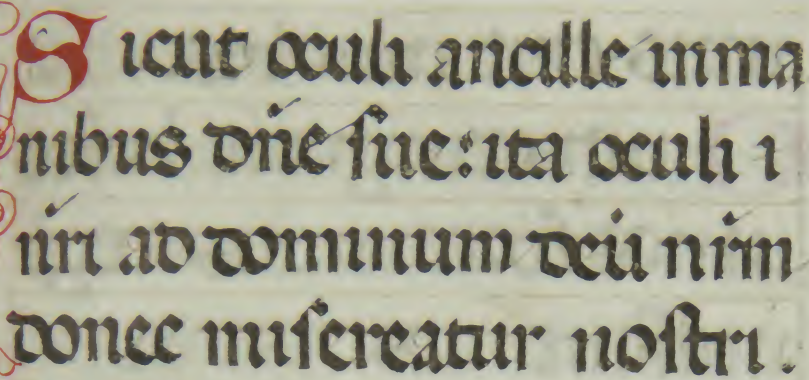 Sicut oculi ancille in ma
nibus dñe sue: ita oculi i
nr̄i ad dominum deū nr̄m
donec misereatur nostri.